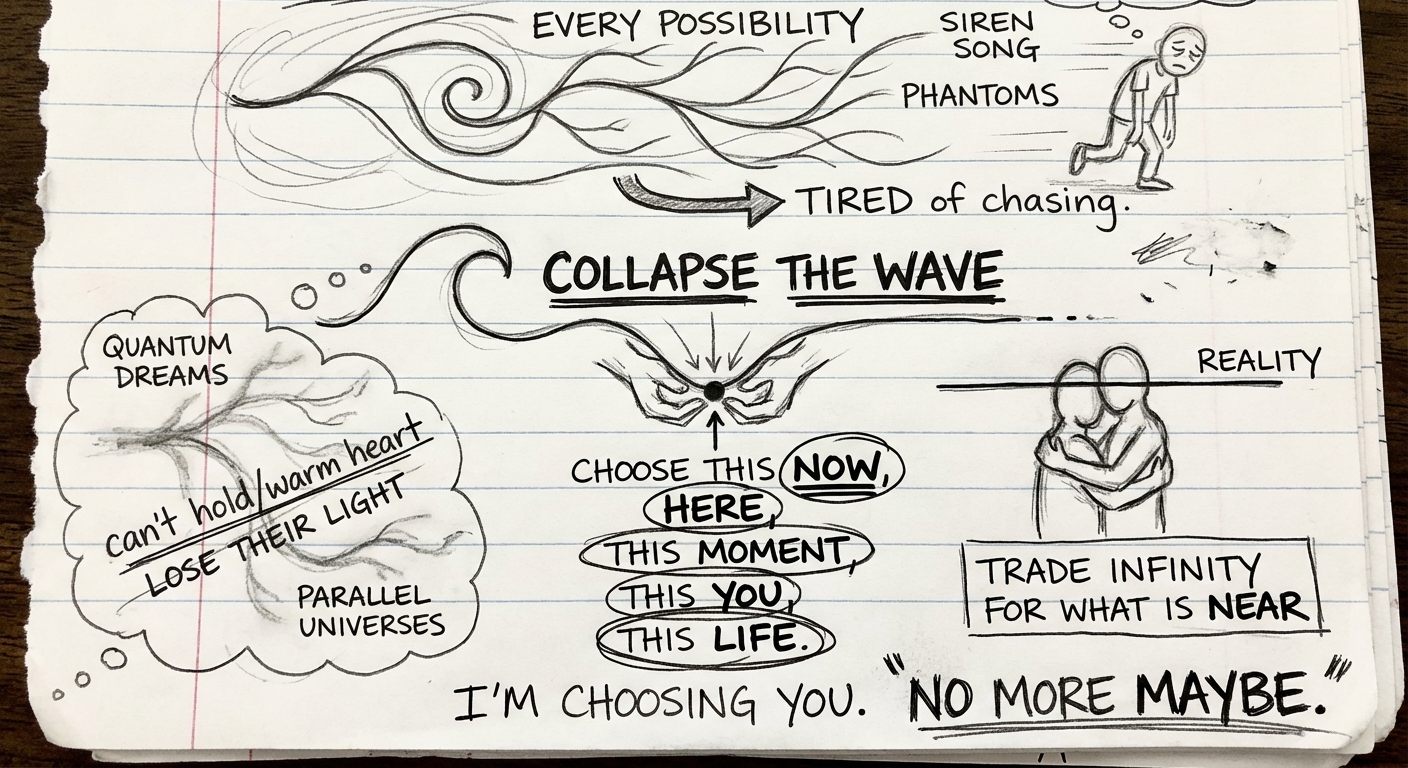 EVERY POSSIBILITY
SIREN
SONG
PHANTOMS
TIRED of chasing.
COLLAPSE THE WAVE
QUANTUM
DREAMS
can't hold/warm heart
LOSE THEIR LIGHT
PARALLEL
UNIVERSES
CHOOSE THIS NOW,
HERE,
THIS MOMENT,
THIS YOU,
THIS LIFE.
REALITY
TRADE INFINITY
FOR WHAT IS NEAR
I'M CHOOSING YOU.
"NO MORE MAYBE."